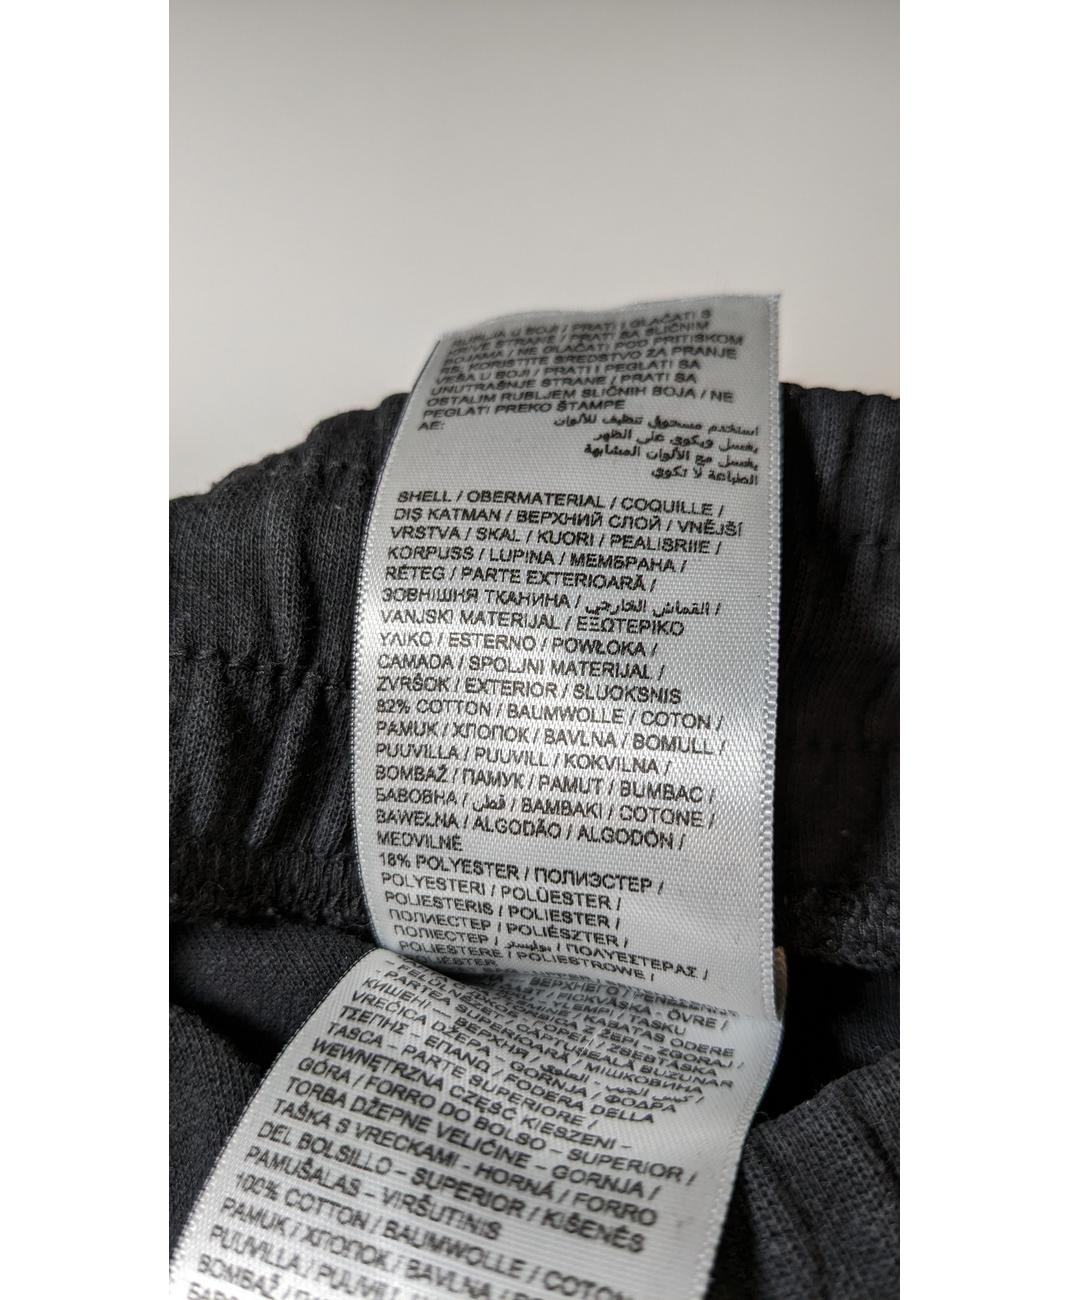 RUBLJA U BOJI / PRATI I GLAČATI S
STRANE / PRATI SA SLIČNIM
BOJAMA / NE GLAČATI POD PRITISKOM
RS: KORISTITE SREDSTVO ZA PRANJE
VEŠA U BOJI / PRATI I PEGLATI SA
UNUTRAŠNJE STRANE / PRATI SA
OSTALIM RUBLJEM SLIČNIH BOJA / NE
PEGLATI PREKO ŠTAMPE
AE: استخدم مسحوق تنظيف للألوان
يغسل ويكوى على الظهر
يغسل مع الألوان المشابهة
الطباعة لا تكوى
SHELL / OBERMATERIAL / COQUILLE /
DIŞ KATMAN / ВЕРХНИЙ СЛОЙ / VNĚJŠÍ
VRSTVA / SKAL / KUORI / PEALISRIIE /
KORPUSS / LUPINA / МЕМБРАНА /
RÉTEG / PARTE EXTERIOARĂ /
ЗОВНІШНЯ ТКАНИНА / القماش الخارجي /
VANJSKI MATERIJAL / ΕΞΩΤΕΡΙΚΟ
ΥΛΙΚΟ / ESTERNO / POWŁOKA /
CAMADA / SPOLJNI MATERIJAL /
ZVRŠOK / EXTERIOR / SLUOKSNIS
82% COTTON / BAUMWOLLE / COTON /
PAMUK / ХЛОПОК / BAVLNA / BOMULL /
PUUVILLA / PUUVILL / KOKVILNA /
BOMBAŽ / ПАМУК / PAMUT / BUMBAC /
БАВОВНА / قطن / BAMBAKI / COTONE /
BAWEŁNA / ALGODÃO / ALGODÓN /
MEDVILNĖ
18% POLYESTER / ПОЛИЭСТЕР /
POLYESTERI / POLÜESTER /
POLIESTERIS / POLIESTER /
ПОЛИЕСТЕР / POLIÉSZTER /
ПОЛІЕСТЕР / بوليستر / ΠΟΛΥΕΣΤΕΡΑΣ /
POLIESTERE / POLIESTROWE /
POLIÉSTER
FICKVÄSKA - ÖVRE /
/ KABATAS ODERE /
Z ŽEPI - ZGORAJ /
/ ZSEBTÁSKA
- SUPERIOARĂ / МІШКОВИНА
КИШЕНІ - ВЕРХНЯ /
VREĆICA DŽEPA - GORNJA / ΦΟΔΡΑ
ΤΣΕΠΗΣ - ΕΠΑΝΩ / FODERA DELLA
TASCA - PARTE SUPERIORE /
WEWNĘTRZNA CZĘŚĆ KIESZENI -
GÓRA / FORRO DO BOLSO - SUPERIOR /
TORBA DŽEPNE VELIČINE - GORNJA /
TAŠKA S VRECKAMI - HORNÁ / FORRO
DEL BOLSILLO - SUPERIOR / KIŠENĖS
PAMUŠALAS - VIRŠUTINIS
100% COTTON / BAUMWOLLE / COTON
PAMUK / ХЛОПОК / BAVLNA /
PUUVILLA / PUUVILL /
BOMBAŽ /